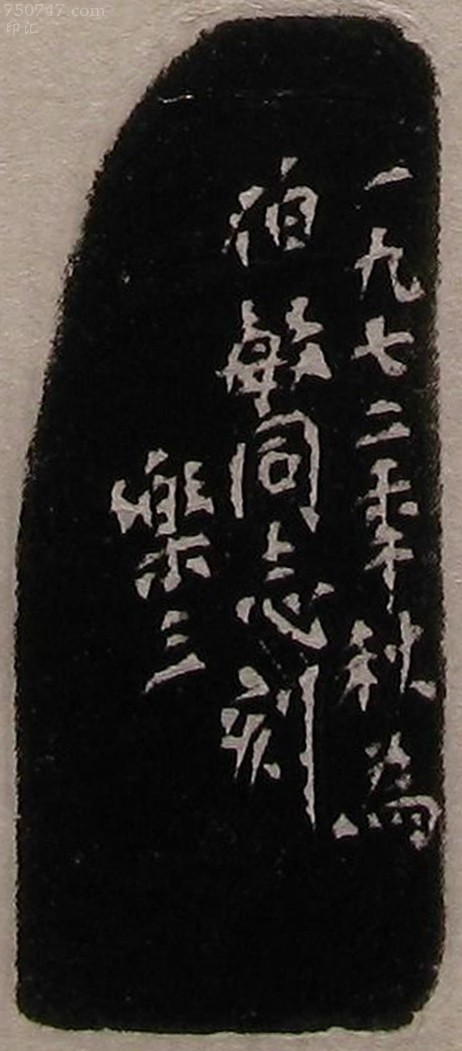 750747.com
印汇
一九七二年秋為
伯敏同志刻
樂三